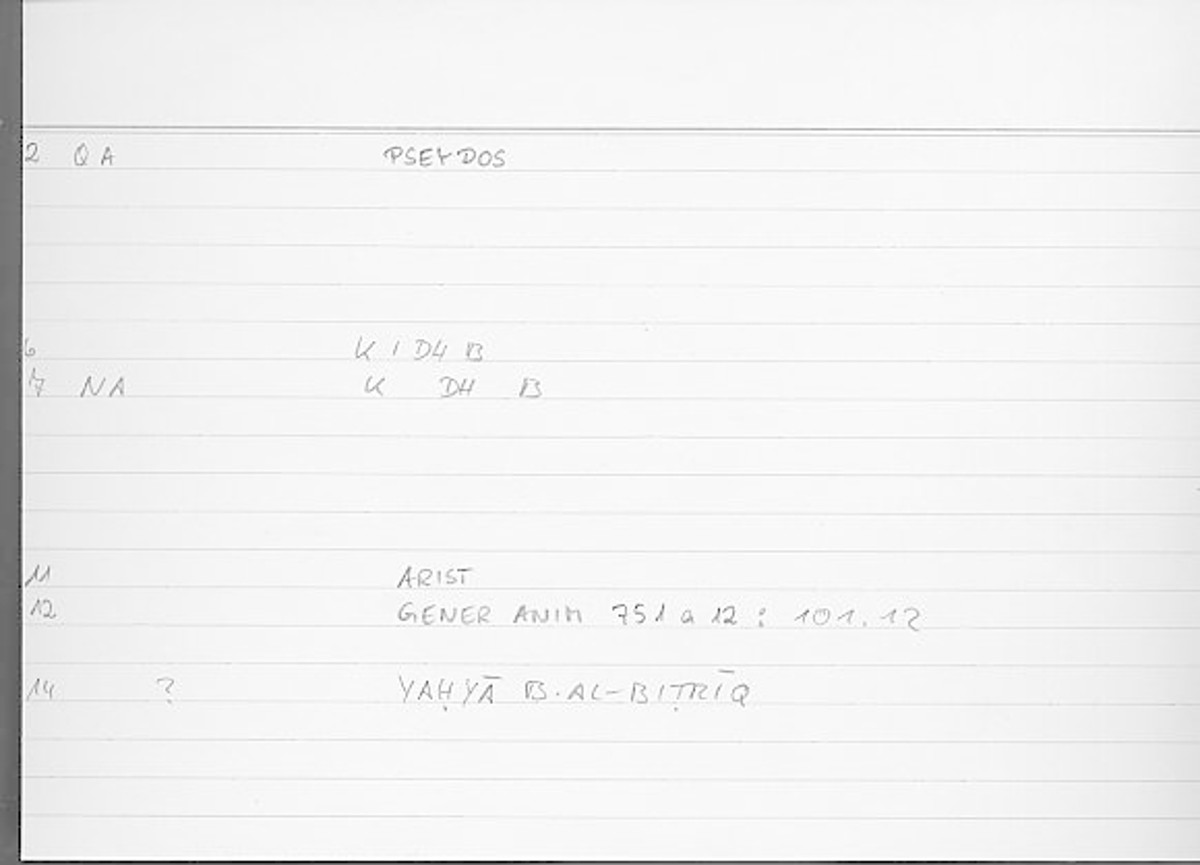 2 QA PSEYDOS
6 K I DH B
7 NA K DH B
11 ARIST
12 GENER ANIM 751 a 12 : 101.12
14 ? YAḤYĀ B. AL-BIṬRĪQ